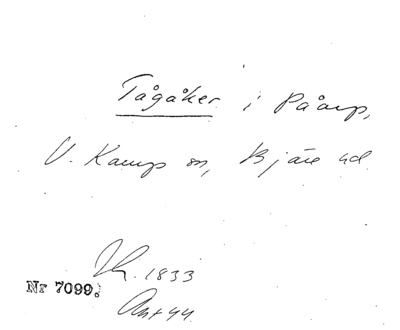 Tågåker i Påarp,
V. Karup sn, Bjäre hd
1833
Nr 7099.
Ant 44.